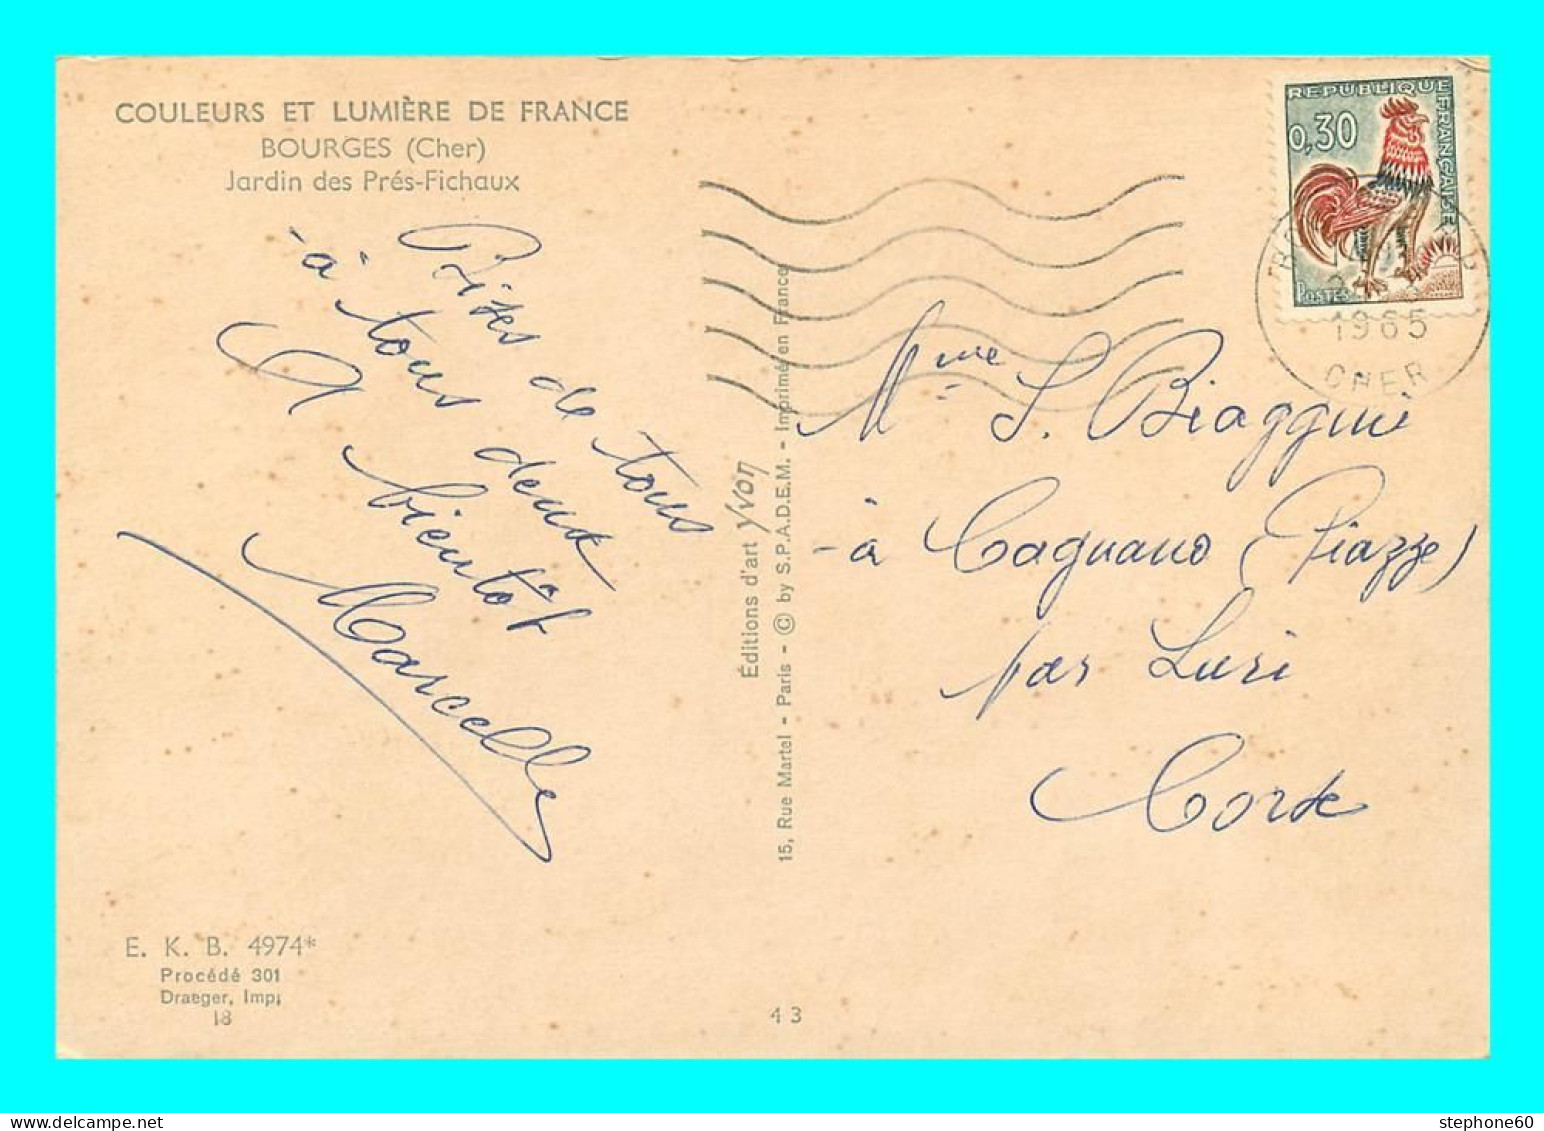 COULEURS ET LUMIÈRE DE FRANCE
BOURGES (Cher)
Jardin des Prés-Fichaux
Bises de tous
à tous deux
A bientôt
Marcelle
E. K. B. 4974*
Procédé 301
Draeger, Imp.
18
Éditions d'art yvon
15, Rue Martel - Paris - © by S.P.A.D.E.M. - Imprimé en France
43
REPUBLIQUE FRANÇAISE
0,30
POSTES
1965
CHER
Mme S. Biaggini
à Cagnano (Piazze)
par Luri
Corse
stephone60